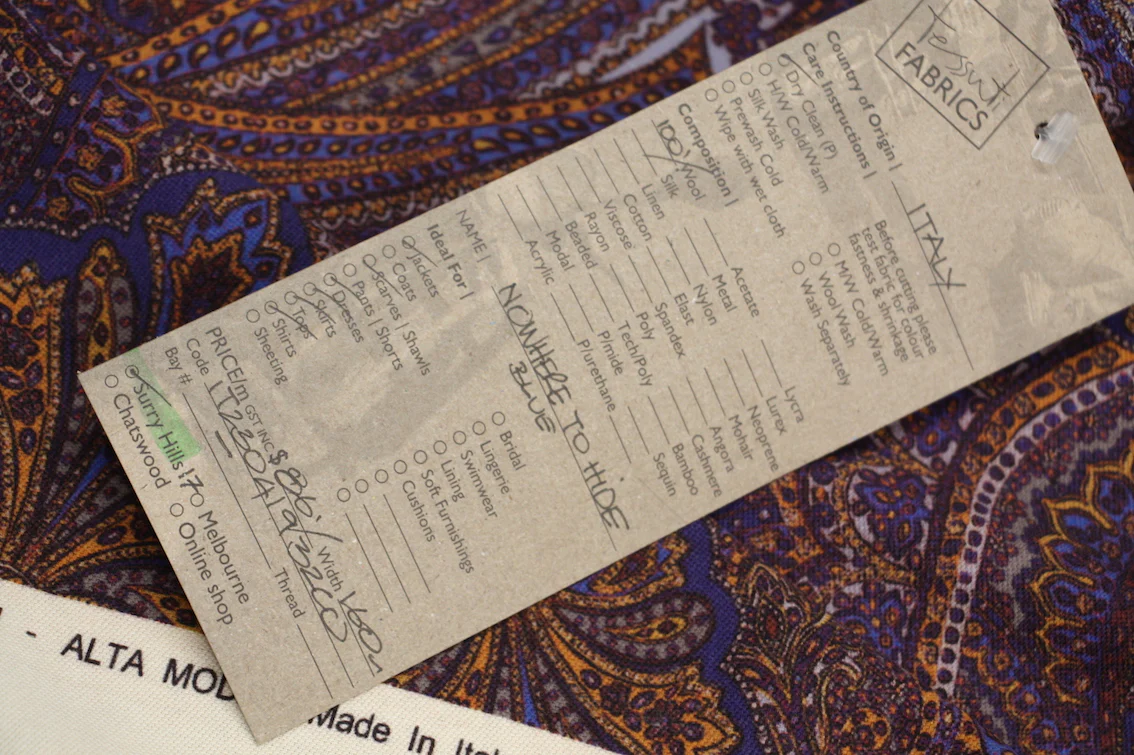 Tessuti
FABRICS
Country of Origin | ITALY
Care Instructions |
Dry Clean (P)
H/W Cold/Warm
Silk Wash
Prewash Cold
Wipe with wet cloth
Before cutting please
test fabric for colour
fastness & shrinkage
M/W Cold/Warm
Wool Wash
Wash Separately
Composition |
100% Wool
Silk
Linen
Cotton
Viscose
Rayon
Beaded
Modal
Acrylic
Acetate
Metal
Nylon
Elast
Spandex
Poly
Tech/Poly
P/mide
P/urethane
Lycra
Lurex
Neoprene
Mohair
Angora
Cashmere
Bamboo
Sequin
NAME | NOWHERE TO HIDE
BLUE
Ideal For |
Jackets
Coats
Scarves | Shawls
Pants | Shorts
Dresses
Skirts
Tops
Shirts
Sheeting
Bridal
Lingerie
Swimwear
Lining
Soft Furnishings
Cushions
PRICE/m GST INC $86./ Width
Code
Bay # Thread
Surry Hills Melbourne
Chatswood Online shop
- ALTA MOD
Made In Ital